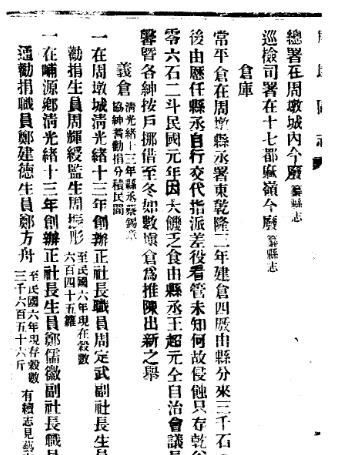 總署在周墩城內今廢 纂縣志
巡檢司署在十七都麻嶺今廢 纂縣志
倉庫
常平倉在周墩縣丞署東乾隆二年建倉四廒由縣分來三千石
後由歷任縣丞自行交代指派差役看管未知何故侵蝕只存乾
零六石二斗民國元年因大饑乏食由縣丞王超元全自治會議
罄暨各紳按戶挪借至冬如數填倉爲推陳出新之舉
義倉 清光緒十三年縣丞蔡錫 協紳耆勸捐分積民間
一在周墩城淸光緒十三年創辦正社長職員周定武副社長生
勸捐生員周輝綬監生周 彤 至民國六年現存穀數 六百四十五籮
一在 源鄉淸光緒十三年創辦正社長生員鄭儒徽副社長職
通勸捐職員鄭建德生員鄭方舟 至民國六年現存穀數 三千六百五十六斤 有續志見